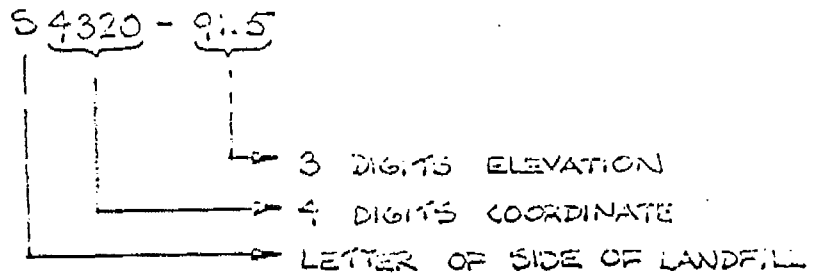 S 4320 - 91.5
3 DIGITS ELEVATION
4 DIGITS COORDINATE
LETTER OF SIDE OF LANDFILL